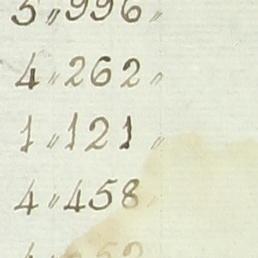 5〃996〃
4〃262〃
1〃121〃
4〃458〃